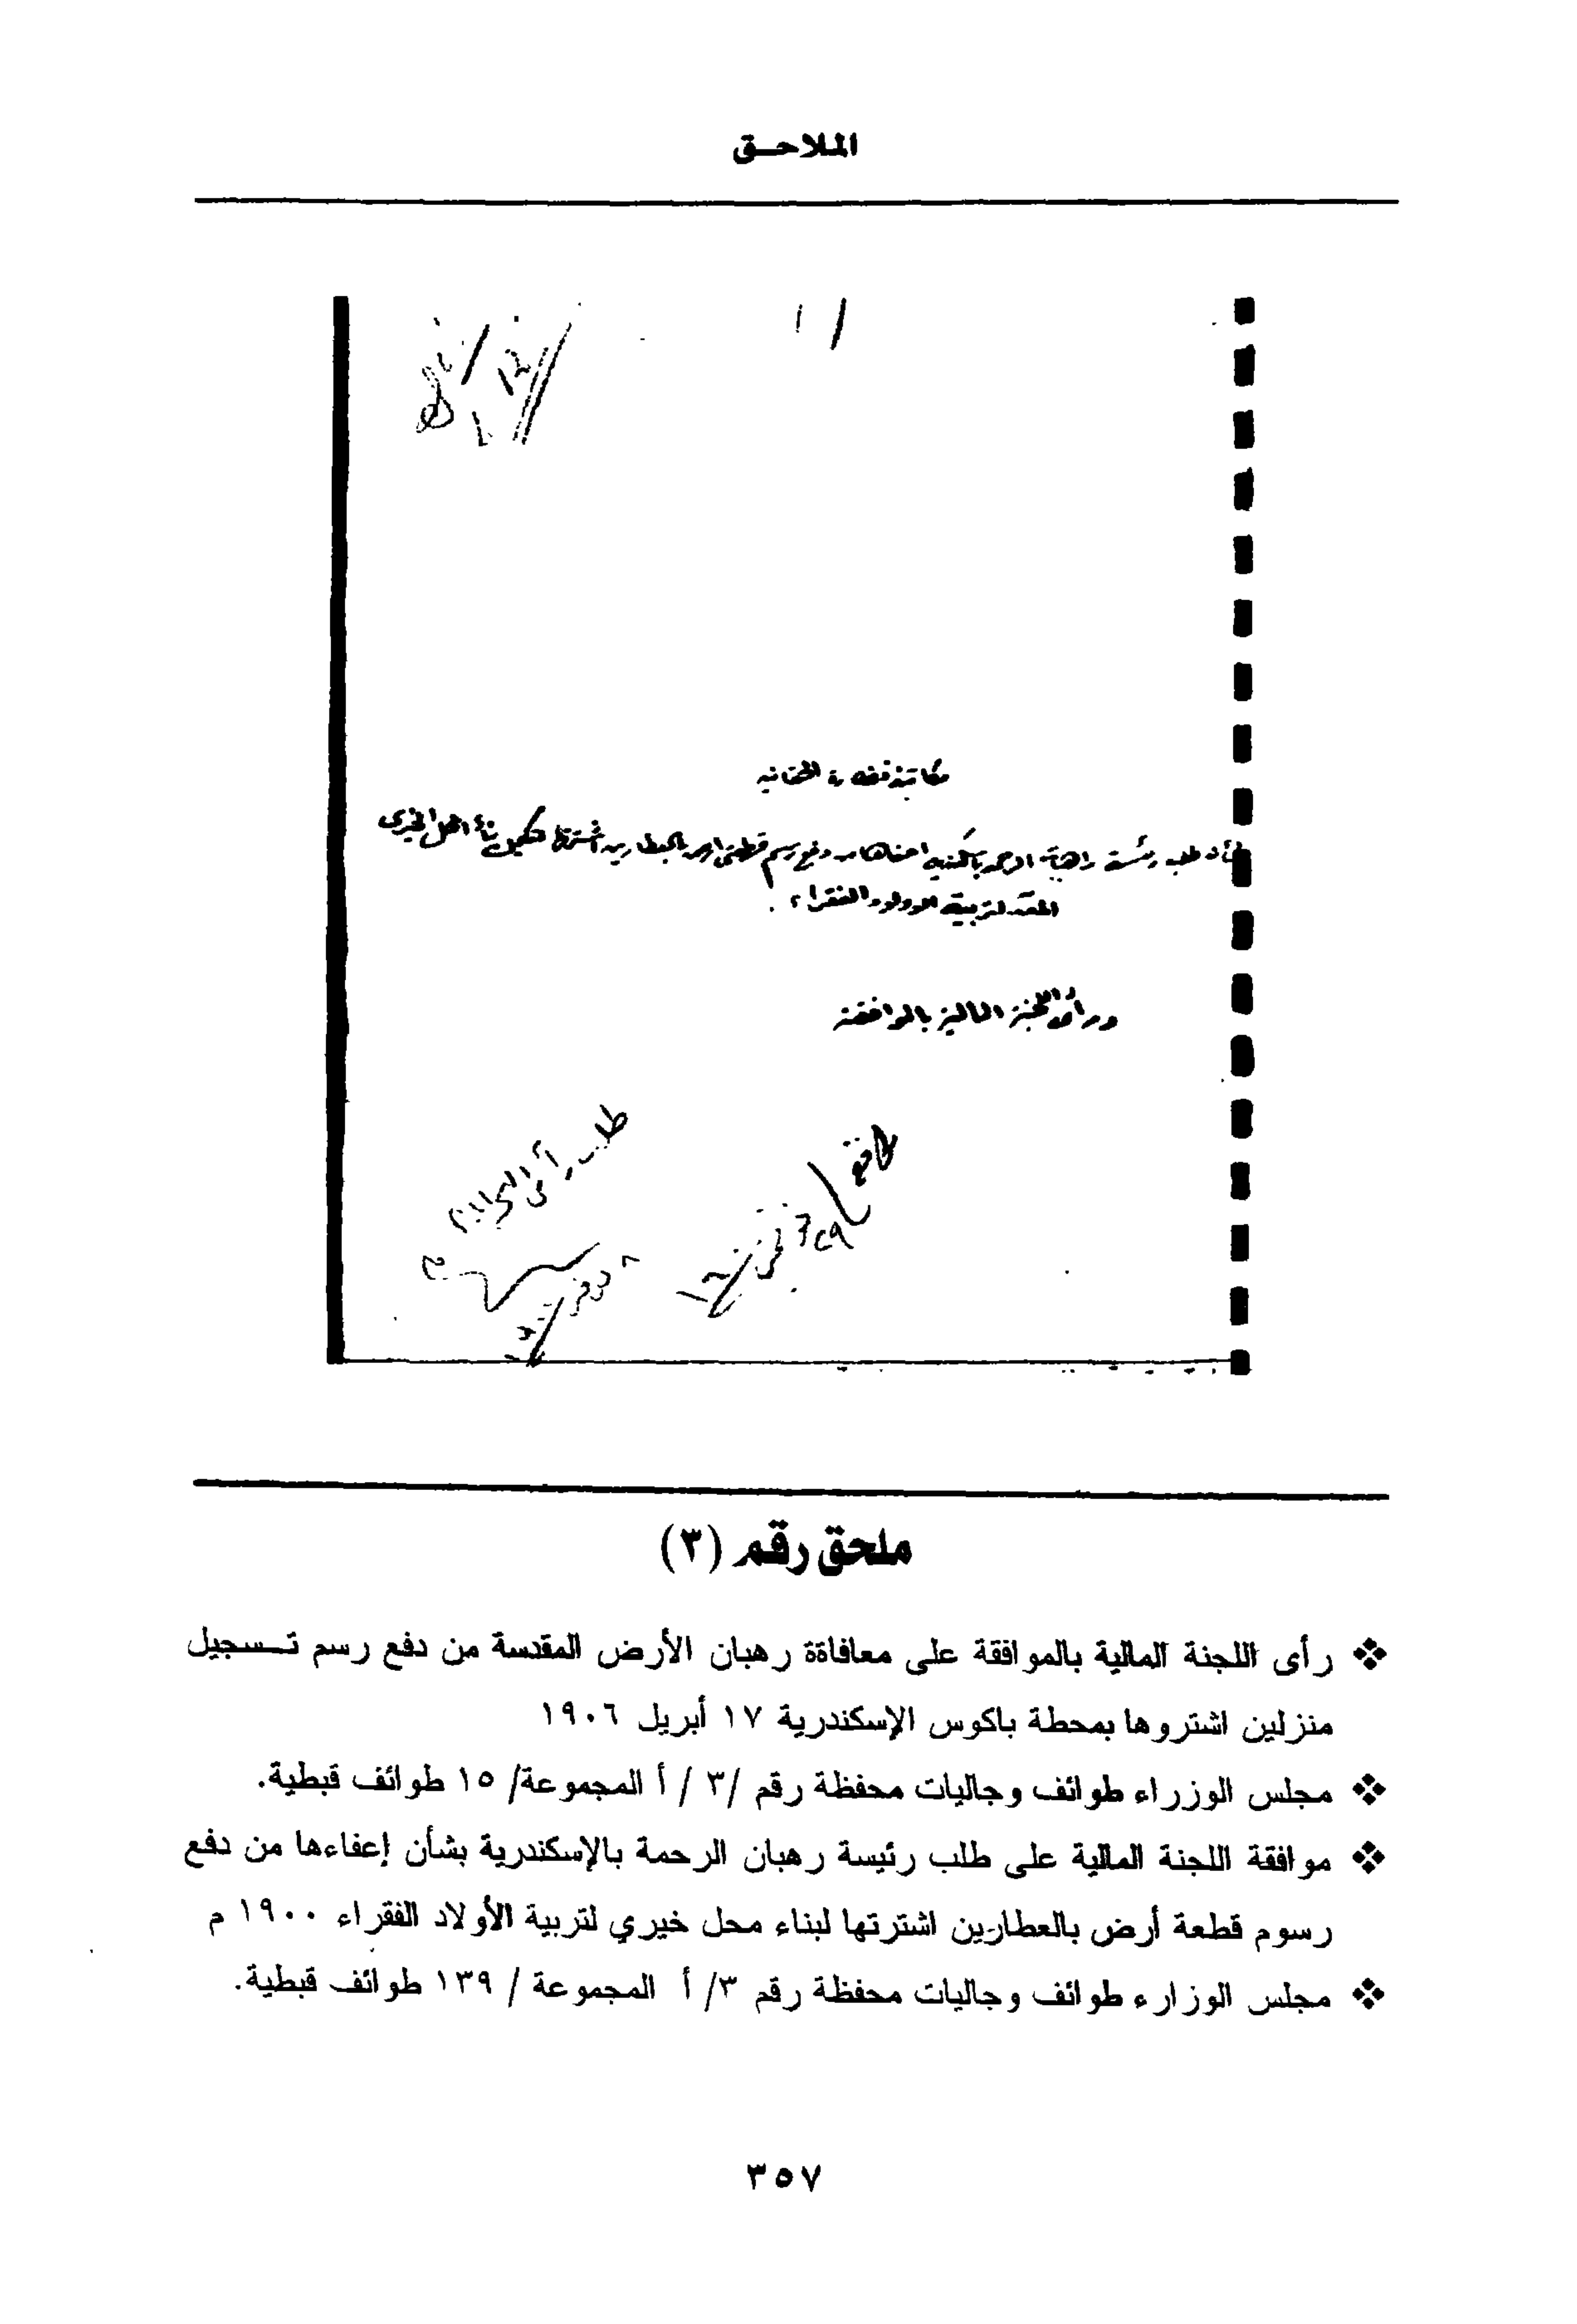 الملاحق
مكاتبة نظارة الحقانيه
طلب رئيسة راهبات الرحمه باسكندريه اعفاها من دفع رسم قطعتى ارض بالعطارين اشترتها لتكميل بناء المحل الخيرى
المعد لتربية الاولاد الفقراء
ورأى اللجنة المالية بالموافقة
طلب رأى المالية
ملحق رقم (٣)
❖ رأى اللجنة المالية بالموافقة على معافاةة رهبان الأرض المقدسة من دفع رسم تسجيل
منزلين اشتروها بمحطة باكوس الإسكندرية ١٧ أبريل ١٩٠٦
❖ مجلس الوزراء طوائف وجاليات محفظة رقم /٣ / أ المجموعة/ ١٥ طوائف قبطية.
❖ موافقة اللجنة المالية على طلب رئيسة رهبان الرحمة بالإسكندرية بشأن إعفاءها من دفع
رسوم قطعة أرض بالعطارين اشترتها لبناء محل خيري لتربية الأولاد الفقراء ١٩٠٠ م
❖ مجلس الوزارء طوائف وجاليات محفظة رقم ٣/ أ المجموعة / ١٣٩ طوائف قبطية.
٣٥٧